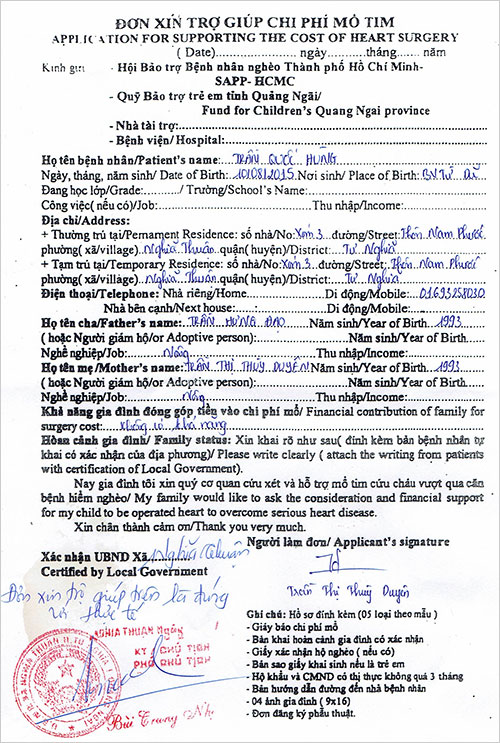 ĐƠN XIN TRỢ GIÚP CHI PHÍ MỔ TIM
APPLICATION FOR SUPPORTING THE COST OF HEART SURGERY
( Date)..................... ngày............tháng....... năm
Kính gửi - Hội Bảo trợ Bệnh nhân nghèo Thành phố Hồ Chí Minh-
SAPP- HCMC
- Quỹ Bảo trợ trẻ em tỉnh Quảng Ngãi/
Fund for Children's Quang Ngai province
- Nhà tài trợ:
- Bệnh viện/ Hospital:
Họ tên bệnh nhân/Patient's name: TRẦN QUỐC HÙNG
Ngày, tháng, năm sinh/ Date of Birth: 10/08/2015 Nơi sinh/ Place of Birth: BV. TỪ DŨ
Đang học lớp/Grade:........../ Trường/School's Name:
Công việc( nếu có)/Job: Thu nhập/Income:
Địa chỉ/Address:
+ Thường trú tại/Permament Residence: số nhà/No: Xóm 3 đường/Street: Thôn Nam Phước
phường( xã/village). Nghĩa Thuận quận( huyện)/District: Tư Nghĩa
+ Tạm trú tại/Temporary Residence: số nhà/No: Xóm 3 đường/Street: Thôn Nam Phước
phường( xã/village). Nghĩa Thuận quận( huyện)/District: Tư Nghĩa
Điện thoại/Telephone: Nhà riêng/Home Di động/Mobile: 01693258030
Nhà bên cạnh/Next house: Di động/Mobile:
Họ tên cha/Father's name: TRẦN HƯNG ĐẠO Năm sinh/Year of Birth 1993
( hoặc Người giám hộ/or Adoptive person): Năm sinh/Year of Birth
Nghề nghiệp/Job: Nông Thu nhập/Income:
Họ tên mẹ/Mother's name: TRẦN THỊ THÙY DUYÊN Năm sinh/Year of Birth 1993
( hoặc Người giám hộ/or Adoptive person): Năm sinh/Year of Birth
Nghề nghiệp/Job: Nông Thu nhập/Income:
Khả năng gia đình đóng góp tiền vào chi phí mổ/ Financial contribution of family for
surgery cost: Không có khả năng
Hoàn cảnh gia đình/ Family status: Xin khai rõ như sau( đính kèm bản bệnh nhân tự
khai có xác nhận của địa phương)/ Please write clearly ( attach the writing from patients
with certification of Local Government).
Nay gia đình tôi xin quý cơ quan cứu xét và hỗ trợ mổ tim cứu cháu vượt qua căn
bệnh hiểm nghèo/ My family would like to ask the consideration and financial support
for my child to be operated heart to overcome serious heart disease.
Xin chân thành cảm ơn/Thank you very much.
Người làm đơn/ Applicant's signature
Xác nhận UBND Xã Nghĩa Thuận
Certified by Local Government
Trần Thị Thùy Duyên
Đơn xin trợ giúp trên là đúng
với thực tế
NGHĨA THUẬN Ngày
KT CHỦ TỊCH
PHÓ CHỦ TỊCH
Bùi Trung
Ghi chú: Hồ sơ đính kèm (05 loại theo mẫu )
- Giấy báo chi phí mổ
- Bản khai hoàn cảnh gia đình có xác nhận
- Giấy xác nhận hộ nghèo ( nếu có)
- Bản sao giấy khai sinh nếu là trẻ em
- Hộ khẩu và CMND có thị thực không quá 3 tháng
- Bản hướng dẫn đường đến nhà bệnh nhân
- 04 ảnh gia đình ( 9x16)
- Đơn đăng ký phẫu thuật.